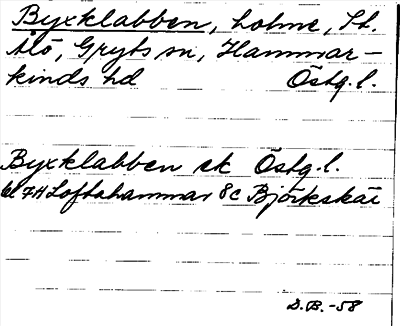 Byxklabben, holme, St.
Ålö, Gryts sn, Hammar-
kinds hd Östg.l.
Byxklabben ek Östg.l.
bl 7H Loftahammar 8c Björkskär
D.B.-58